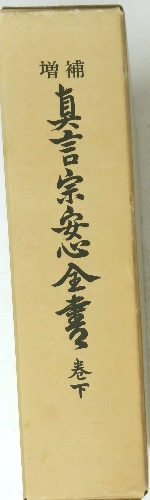 補增
真言宗安心全書
巻下